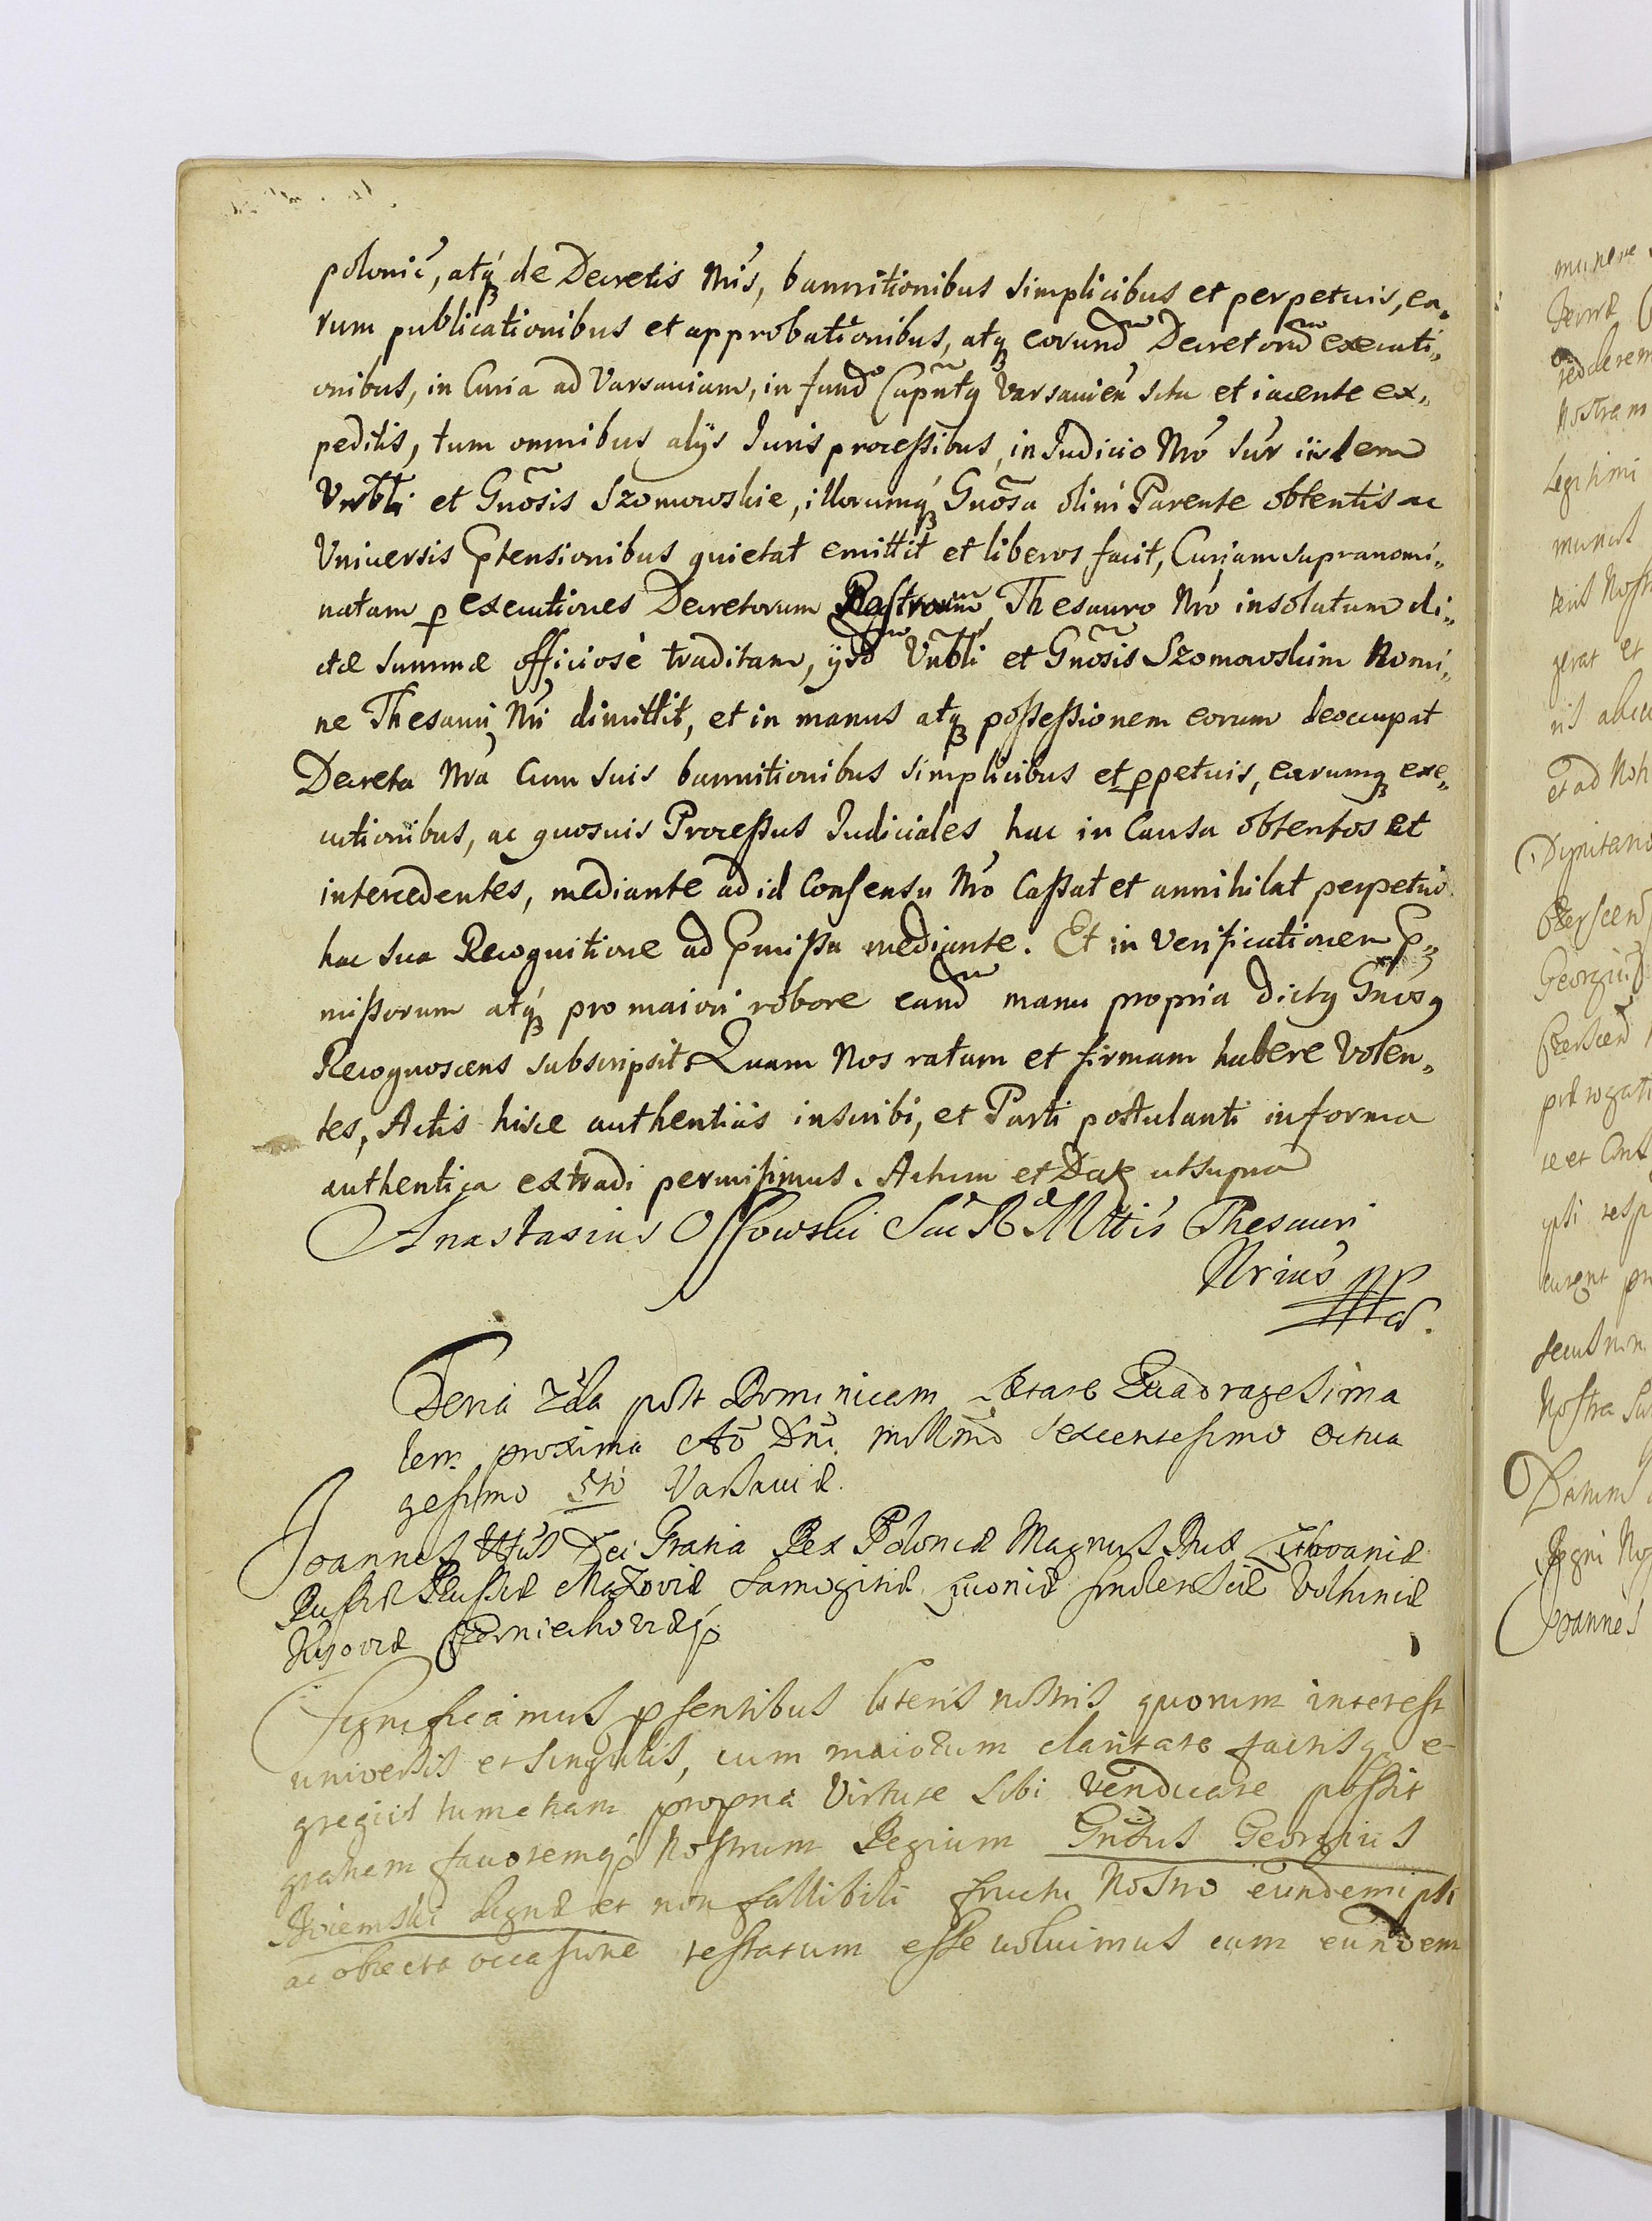 polonic̃, atq́ꝫ de Decretis Nr̃is, bannitionibus simplicibus et perpetuis, ea„
rum publicationibus et approbationibus, atqꝫ eorund̃ Decretorũ executi„
onibus, in Curia ad Varsaviam, in fundo Varsavień situ et iacente ex„
peditis, tum omnibus alijs Iuris processibus, in Iudicio Nr̃o sũr iisdem
Urb̃li et Gnõsis Szomowskie, illorumq́ꝫ Gnõsa olim Parente obtentis ac
Universis Prætensionibus quietat emittit et liberos facit, Curiam supranomi„
natam p executiones Decretorum Nostrorum, Thesauro Nr̃o in solutum di„
ctæ summæ officiosè traditam, ijsd̃ Urb̃li et Gnõsis Szomowskim Nomi„
ne Thesauri Nr̃i dimittit, et in manus atqꝫ possessionem eorum deoccupat
Decreta Nr̃a Cum suis bannitionibus simplicibus et ꝑpetuis, earumqꝫ exe„
cutionibus, ac quosvis Processus Iudiciales hac in Causa obtentos et
intercedentes, mediante ad id Consensu Nr̃o Cassat et annihilat perpetuò
hac sua Recognitione ad Præmissa mediante. Et in Verificationem Præ„
missorum atq́ꝫ pro maiori robore eand̃ manu propria dictꝯ Gnosꝯ
Recognoscens subscripsit. Quam Nos ratam et firmam habere Volen„
tes, Actis hisce authenticis inscribi, et Parti postulanti in forma
authentica extradi permisimus. Actum et Datꝫ ut supra
Anastasius Ossowski Sac̃ Ræ Mttis Thesauri
Nrius mp
Feria 2da post Dominicam Lætare Quadragesima
lem proxima Ao Dni millmo sexcentesimo octua
gesimo 5to Varsaviæ.
Joannes IIItius Dei Gratia Rex Poloniæ Magnus Dux Lithvaniæ
Russiæ Prussiæ Mazoviæ Samogitiæ Livoniæ Smolensciæ Volhiniæ
Kijoviæ Czerniechoviæqꝫ
Significamus pñsentibus literis nostris quorum interest
universis et singulis, cum maiorum claritate factisqꝫ e-
gregiis tum etiam propria Virtute sibi vendicare possit
gratiam favoremq́ꝫ Nostrum Regium Gnõsus Georgius
et non fallibili fructu Nostro eundem ipsi
ac obiecta occasione testatum esse voluimus eum eundem